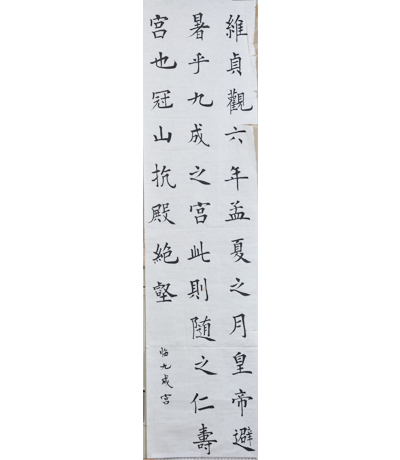 維貞觀六年孟夏之月皇帝避
暑乎九成之宫此則随之仁壽
宫也冠山抗殿絶壑
临九成宫